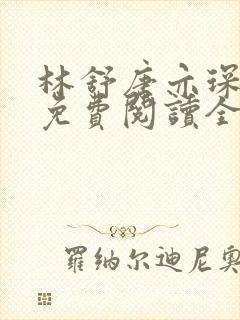 林舒唐亦琛
免費閱讀全
羅纳尔迪尼奥